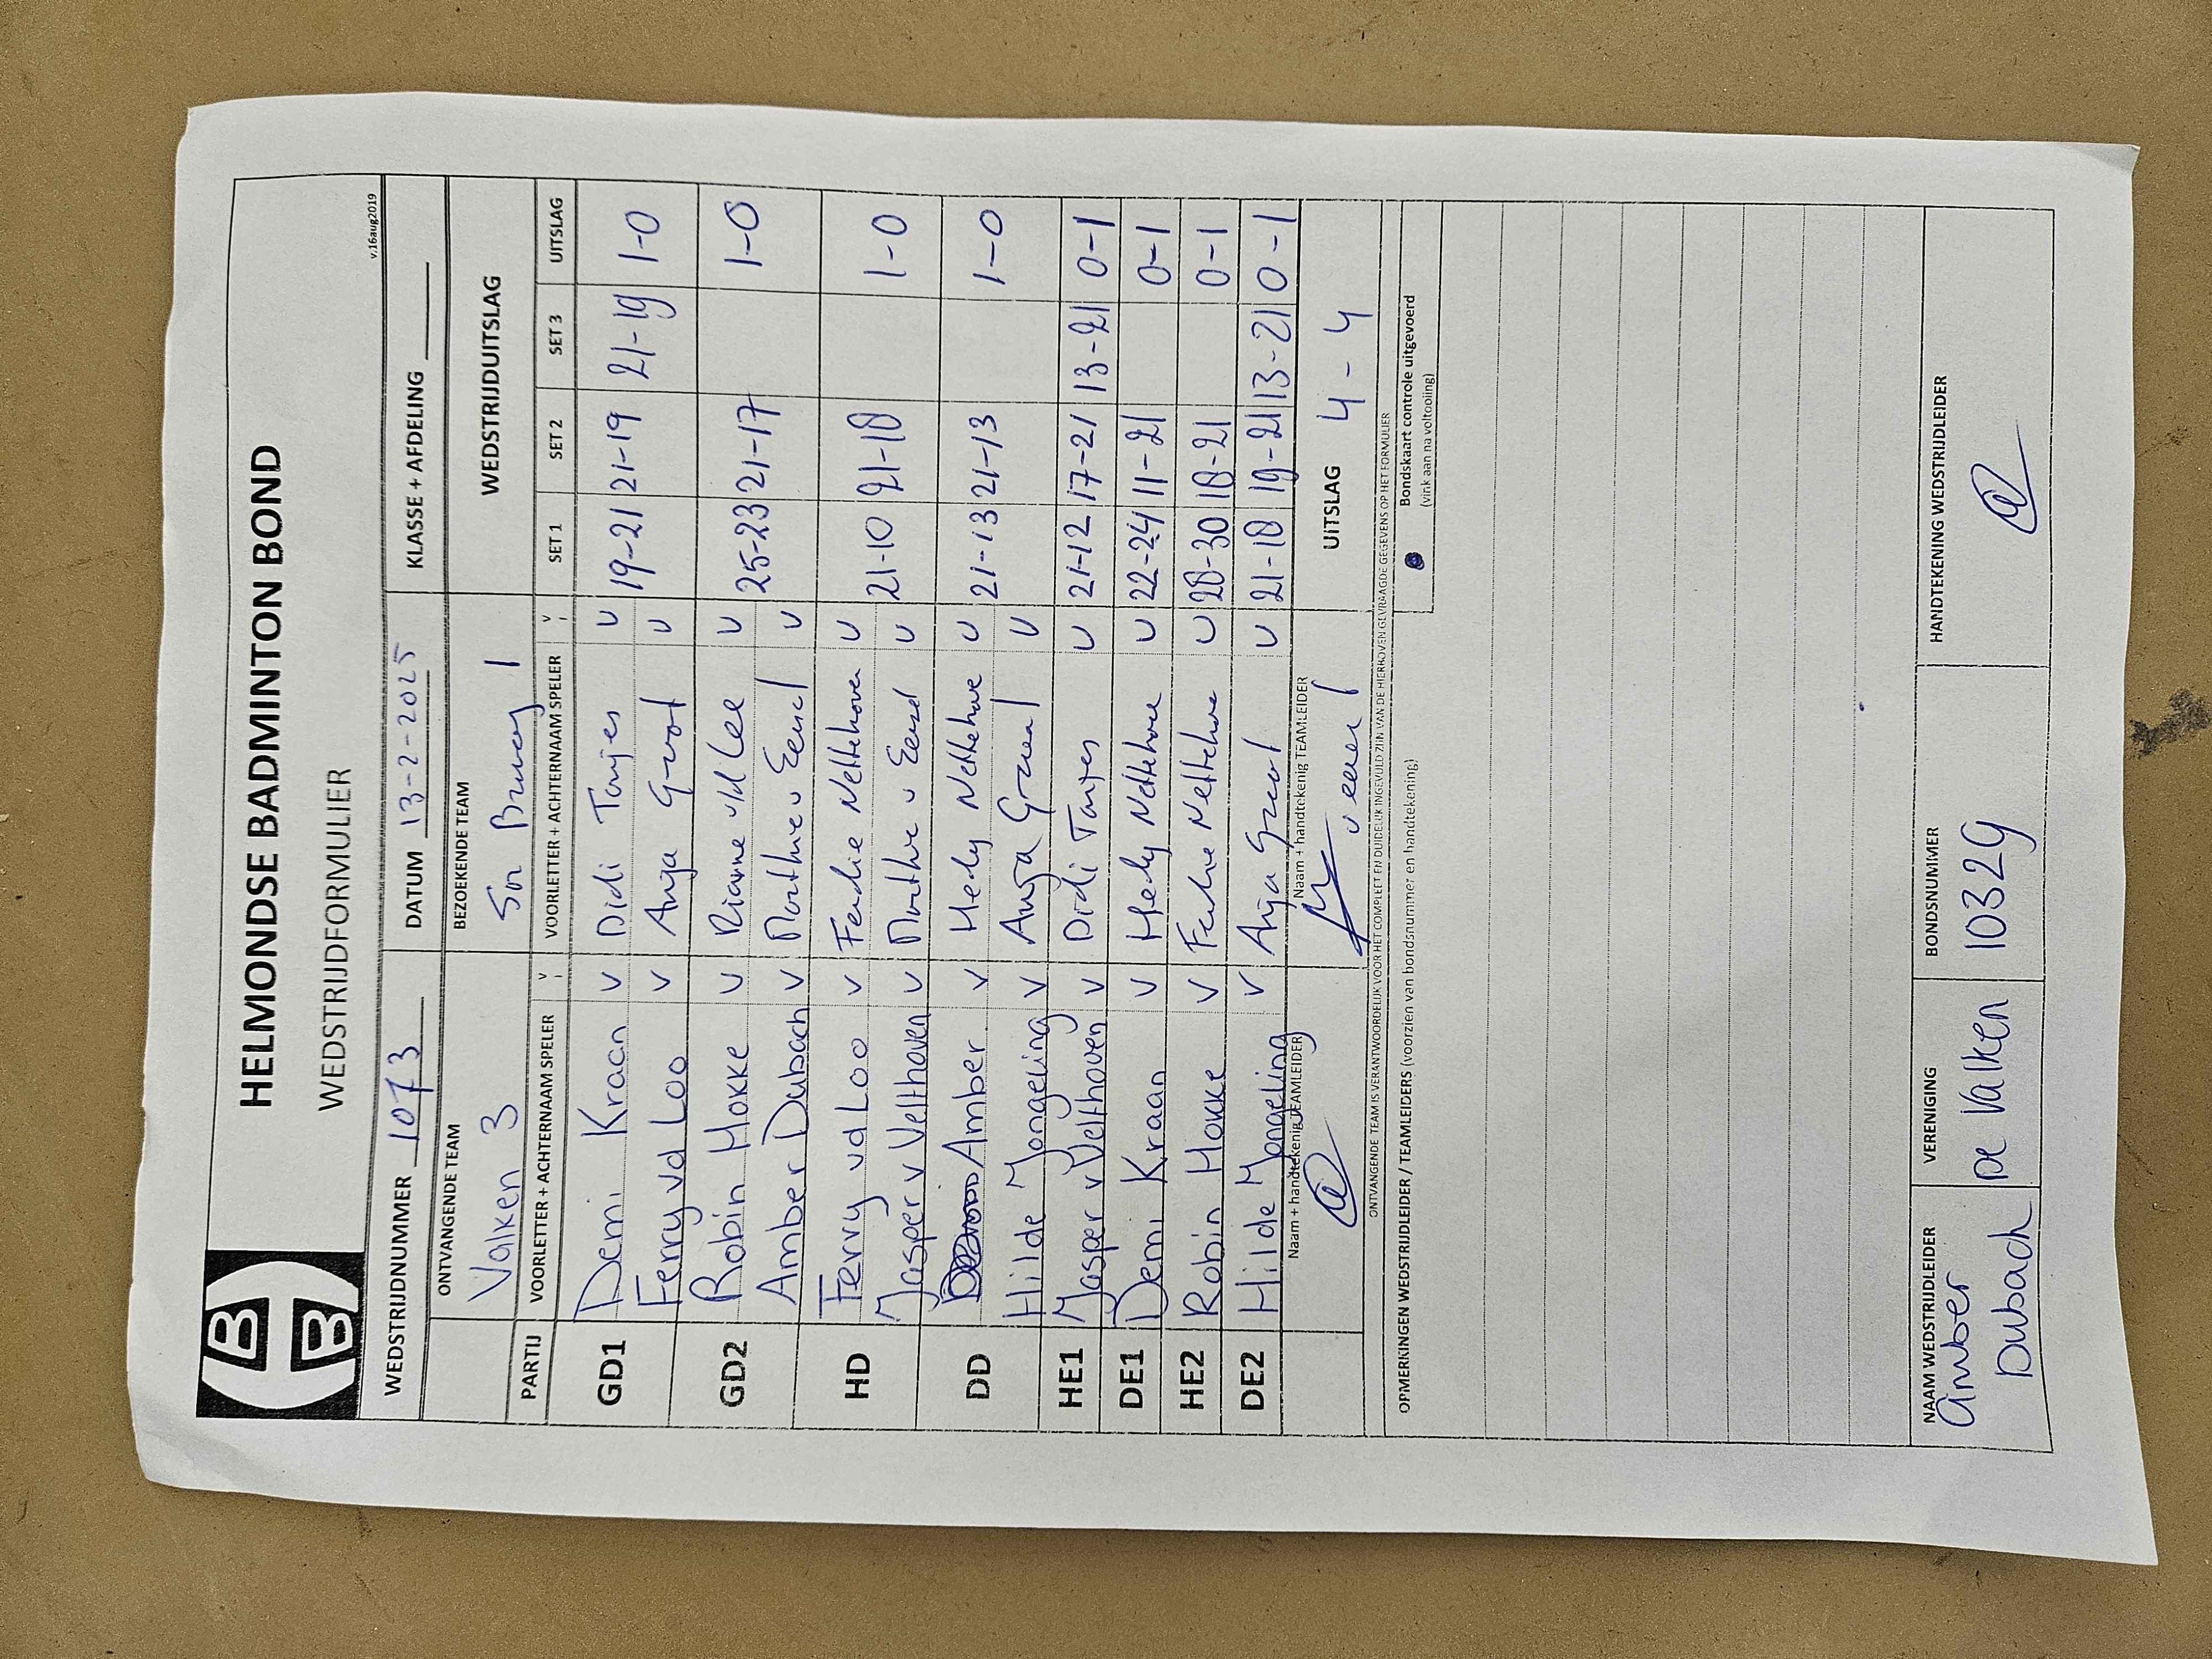 HELMONDSE BADMINTON BOND
WEDSTRIJDFORMULIER
v.16aug2019
WEDSTRIJDNUMMER 1073 DATUM 13-2-2025 KLASSE + AFDELING
ONTVANGENDE TEAM BEZOEKENDE TEAM WEDSTRIJDUITSLAG
Valken 3 1
PARTIJ VOORLETTER + ACHTERNAAM SPELER V VOORLETTER + ACHTERNAAM SPELER V SET 1 SET 2 SET 3 UITSLAG
GD1 Demi Kraan V Didi Tonjes V 19-21 21-19 21-19 1-0
Ferry vd Loo V Anja Groot V
GD2 Robin Hokke V Rianne vd Lee V 25-23 21-17 1-0
Amber Dubach V V
HD Ferry vd Loo V V 21-10 21-18 1-0
Jasper v Velthoven V V
DD Amber V Hedy V 21-13 21-13 1-0
Hilde Jongeling V Anja V
HE1 Jasper v Velthoven V Didi V 21-12 17-21 13-21 0-1
DE1 Demi Kraan V Hedy V 22-24 11-21 0-1
HE2 Robin Hokke V V 28-30 18-21 0-1
DE2 Hilde Jongeling V Anja V 21-18 19-21 13-21 0-1
Naam + handtekenig TEAMLEIDER Naam + handtekenig TEAMLEIDER UITSLAG 4-4
ONTVANGENDE TEAM IS VERANTWOORDELIJK VOOR HET COMPLEET EN DUIDELIJK INGEVULD ZIJN VAN DE HIERBOVEN GEVRAAGDE GEGEVENS OP HET FORMULIER
Bondskaart controle uitgevoerd
(vink aan na voltooiing)
OPMERKINGEN WEDSTRIJDLEIDER / TEAMLEIDERS (voorzien van bondsnummer en handtekening)
NAAM WEDSTRIJDLEIDER VERENIGING BONDSNUMMER HANDTEKENING WEDSTRIJDLEIDER
Amber De Valken 10329
Dubach